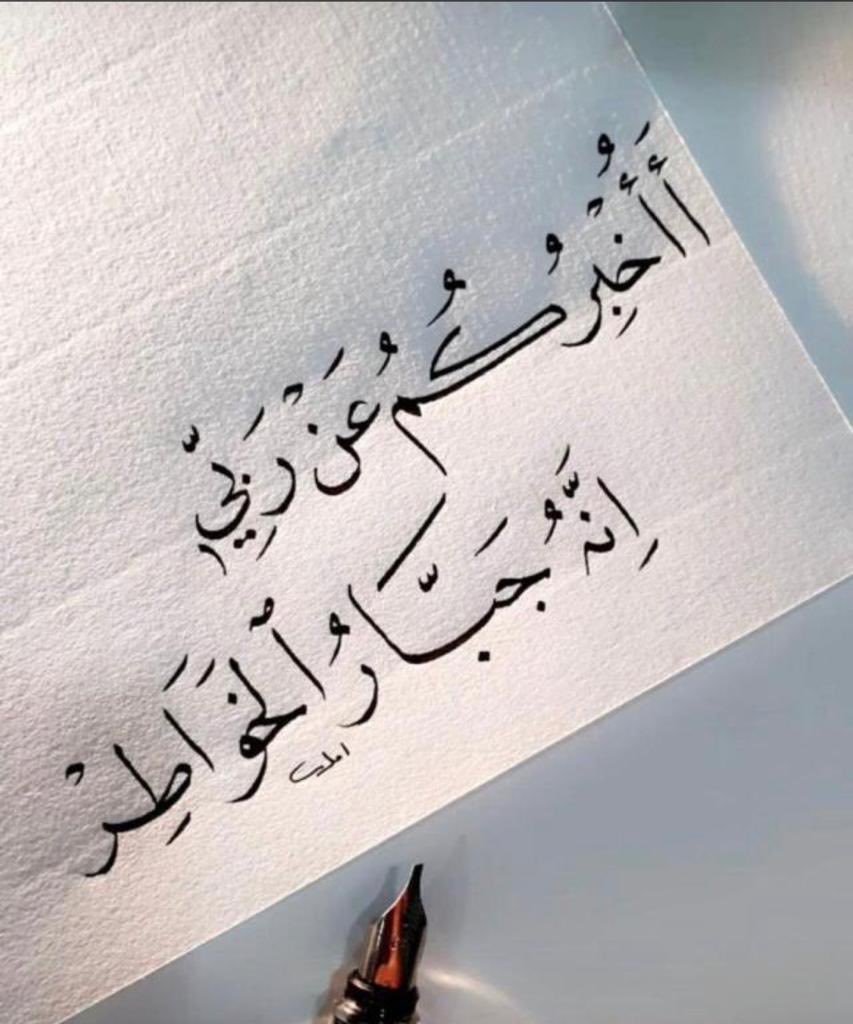 أَأُخْبِرُكُمُ عَنْ رَبِّي
إِنَّهُ جَبَّارُ ٱلْخَوَاطِرْ